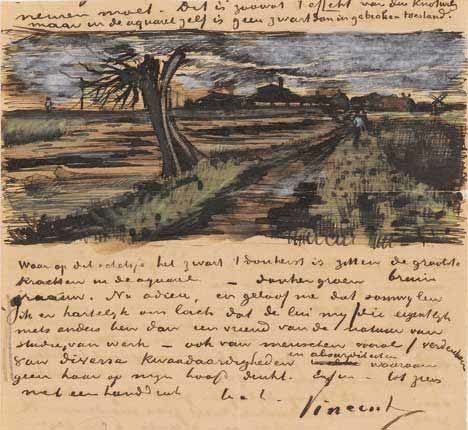 nemen moet. Dit is zoowat 't effekt van den Knotwilg
maar in de aquarel zelf is geen zwart dan in gebroken toestand.
Waar op dit schetsje het zwart 't donkerst is zitten de grootste
krachten in de aquarel – donkergroen bruin
graauw. Nu adieu, en geloof me dat somwylen
ik er hartelijk om lach dat de lui my
niets anders ben dan een vriend van de natuur van
studie, van werk – ook van menschen vooral / verdenken
van diverse kwaadaardigheden en absurditeiten waaraan
geen haar op myn hoofd denkt. Enfin – tot ziens
met een handdruk t. à t.
Vincent